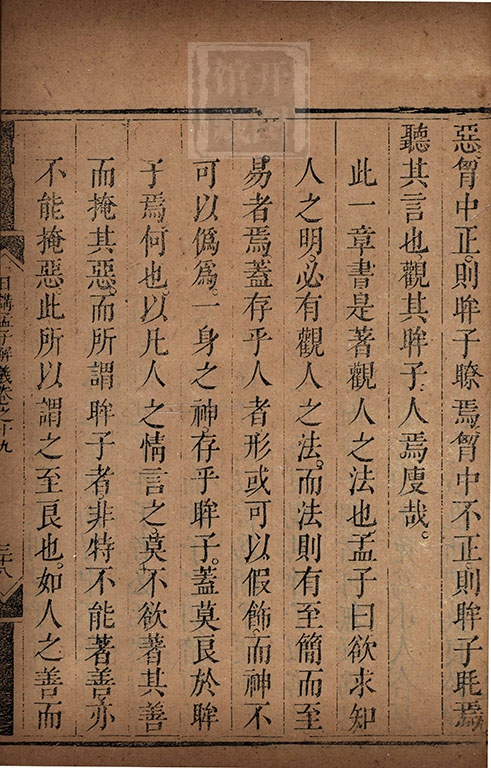 惡胷中正則眸子瞭焉胷中不正則眸子眊焉
聽其言也觀其眸子人焉廋哉。
此一章書是著觀人之法也孟子曰欲求知
人之明必有觀人之法。而法則有至簡而至
易者焉蓋存乎人者形或可以假飾而神不
可以僞爲。一身之神存乎眸子。蓋莫良於眸
子焉何也以凡人之情言之莫不欲著其善
而掩其惡。而所謂眸子者非特不能著善亦
不能掩惡。此所以謂之至良也。如人之善而
日講孟子解義卷之十九
三十八